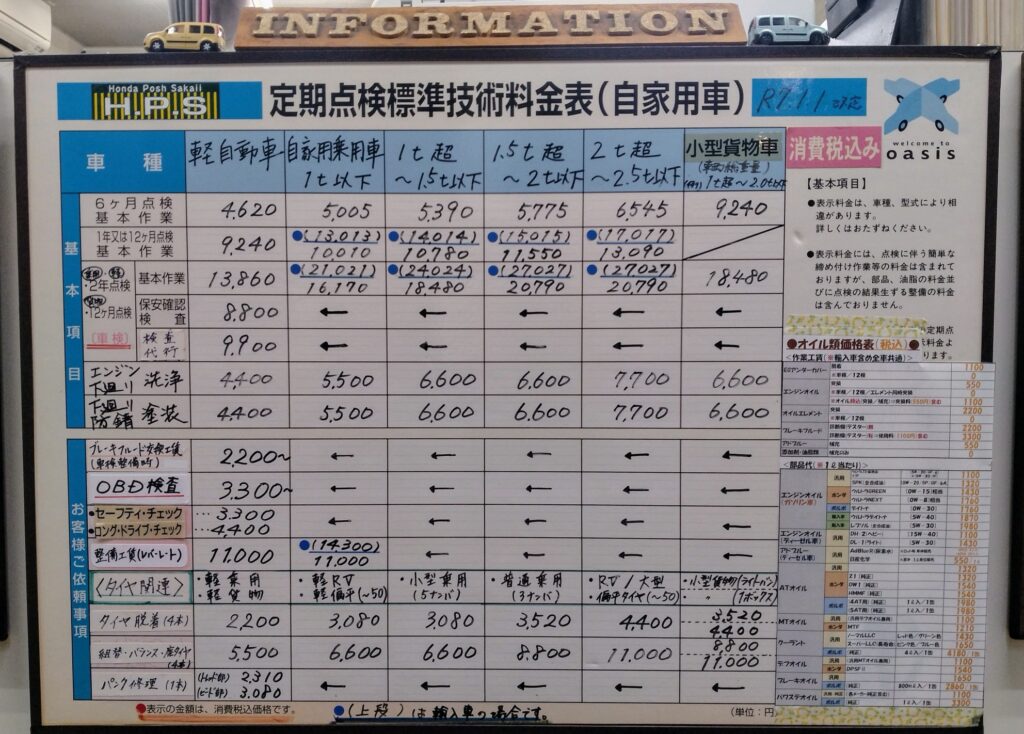 INFORMATION
Honda Posh Sakaii
H.P.S
定期点検標準技術料金表(自家用車)
R7.1.1 改定
welcome to
oasis
車種 軽自動車 自家用乗用車 1t以下 1t超〜1.5t以下 1.5t超〜2t以下 2t超〜2.5t以下 小型貨物車 (車両総重量) 1t超〜2.0t以下
消費税込み
基本項目
6ヶ月点検 基本作業 4,620 5,005 5,390 5,775 6,545 9,240
1年又は12ヶ月点検 基本作業 9,240 ●(13,013) 10,010 ●(14,014) 10,780 ●(15,015) 11,550 ●(17,017) 13,090
・2年点検 ・12ヶ月点検 【車検】
基本作業 13,860 ●(21,021) 16,170 ●(24,024) 18,480 ●(27,027) 20,790 ●(27,027) 20,790 18,480
保安確認検査 8,800 ← ← ← ← ←
検査代行 9,900 ← ← ← ← ←
エンジン下廻り 洗浄 4,400 5,500 6,600 6,600 7,700 6,600
下廻り防錆 塗装 4,400 5,500 6,600 6,600 7,700 6,600
お客様ご依頼事項
ブレーキフルード交換工賃(車検整備時) 2,200〜 ← ← ← ← ←
OBD検査 3,300〜 ← ← ← ← ←
・セーフティ・チェック …3,300
・ロング・ドライブ・チェック …4,400 ← ← ← ← ←
整備工賃(レバーレート) 11,000 ●(14,300) 11,000 ← ← ← ←
〈タイヤ関連〉 ・軽乗用 ・軽貨物 ・軽RV ・軽偏平(〜50) ・小型乗用 (5ナンバ) ・普通乗用 (3ナンバ) ・RV/大型 ・偏平タイヤ(〜50) ・小型貨物(ライトバン) ・〃(1ボックス)
タイヤ脱着(4本) 2,200 3,080 3,080 3,520 4,400 3,520 4,400
組替・バランス・廃タイヤ(4本) 5,500 6,600 6,600 8,800 11,000 8,800 11,000
パンク修理(1本) (トレッド部) 2,310 (ビード部) 3,080 ← ← ← ← ←
●表示の金額は、消費税込価格です。
●(上段)は輸入車の場合です。
(単位:円)
【基本項目】
●表示料金は、車種、型式により相
違があります。
詳しくはおたずねください。
●表示料金には、点検に伴う簡単な
締め付け作業等の料金は含まれて
おりますが、部品、油脂の料金並
びに点検の結果生ずる整備の料金
は含んでおりません。
定期点
料金よ
ります。
●オイル類価格表(税込)●
<作業工賃(※輸入車含め全車共通)>
エンジンオイル
オイルエレメント
ブレーキフルード
<部品代(※1ℓ当たり)>
エンジンオイル (ガソリン車)
ウルトラGREEN
ウルトラNEXT
エンジンオイル (ディーゼル車)
アドブルー (ディーゼル車)
ATオイル
MTオイル
クーラント
デフオイル
ブレーキオイル
パワステオイル